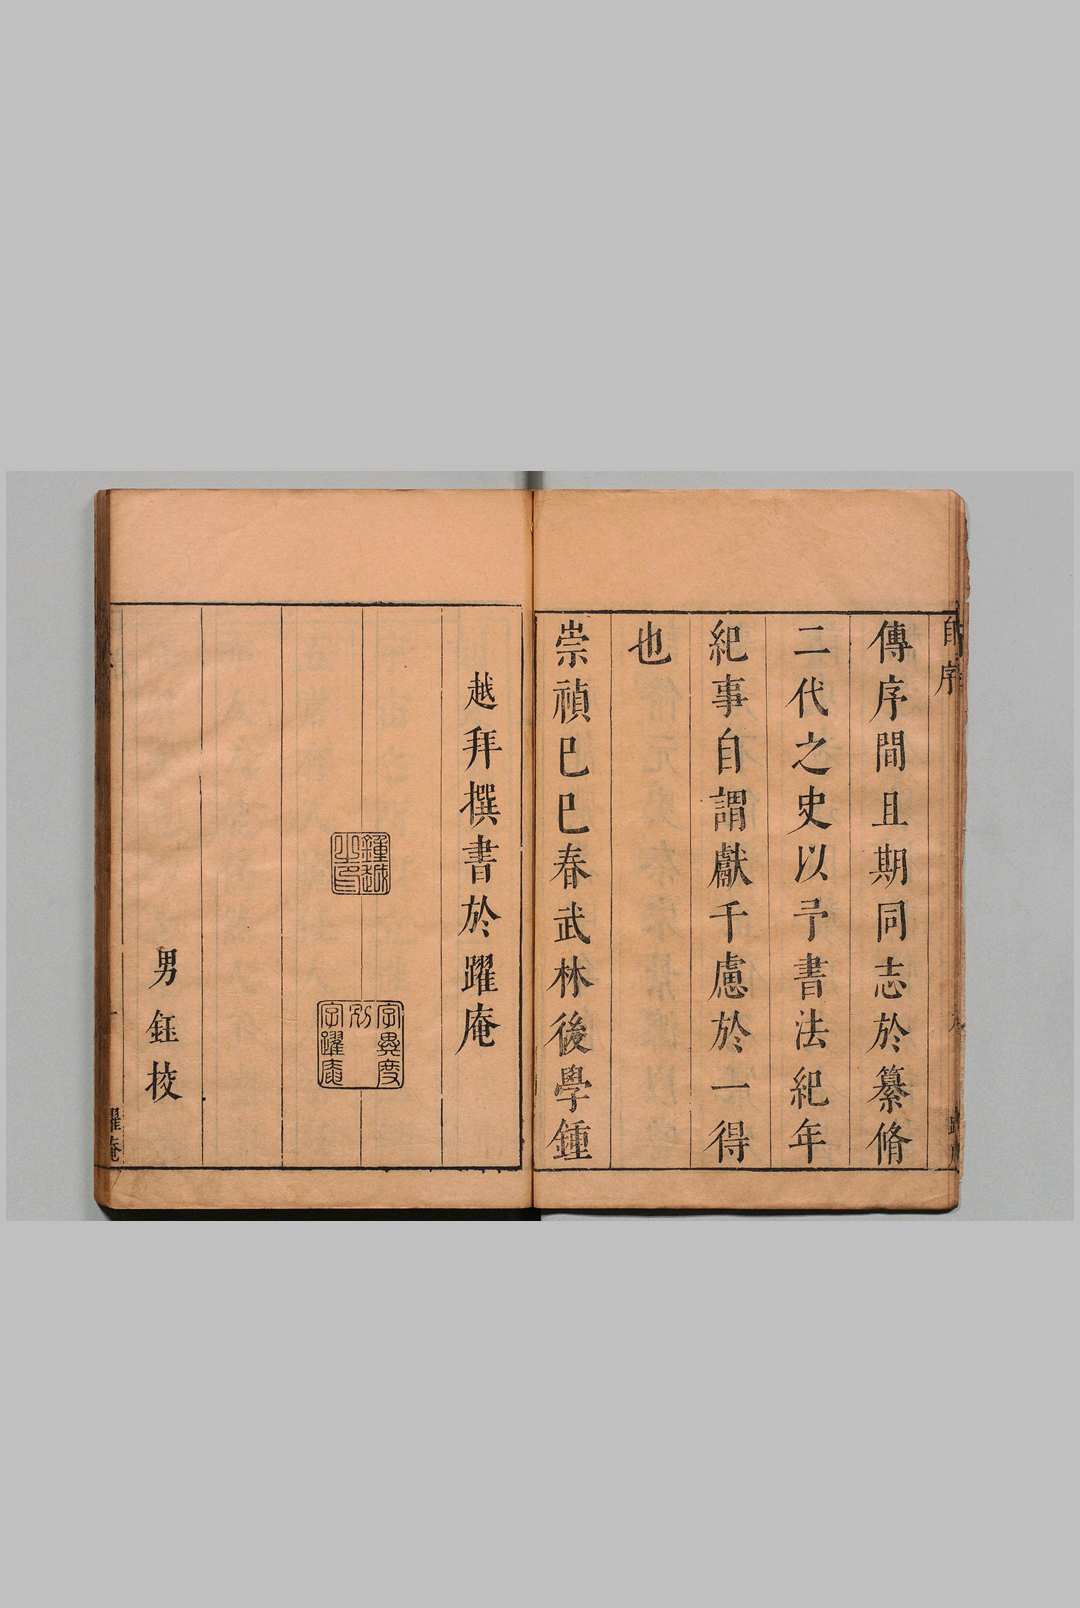 傳序間且期同志於纂脩
二代之史以予書法紀年
紀事自謂獻千慮於一得
也
崇禎己巳春武林後學鍾
越拜撰書於躍庵
鍾越之印
字異度別字躍庵
男鈺挍
躍庵